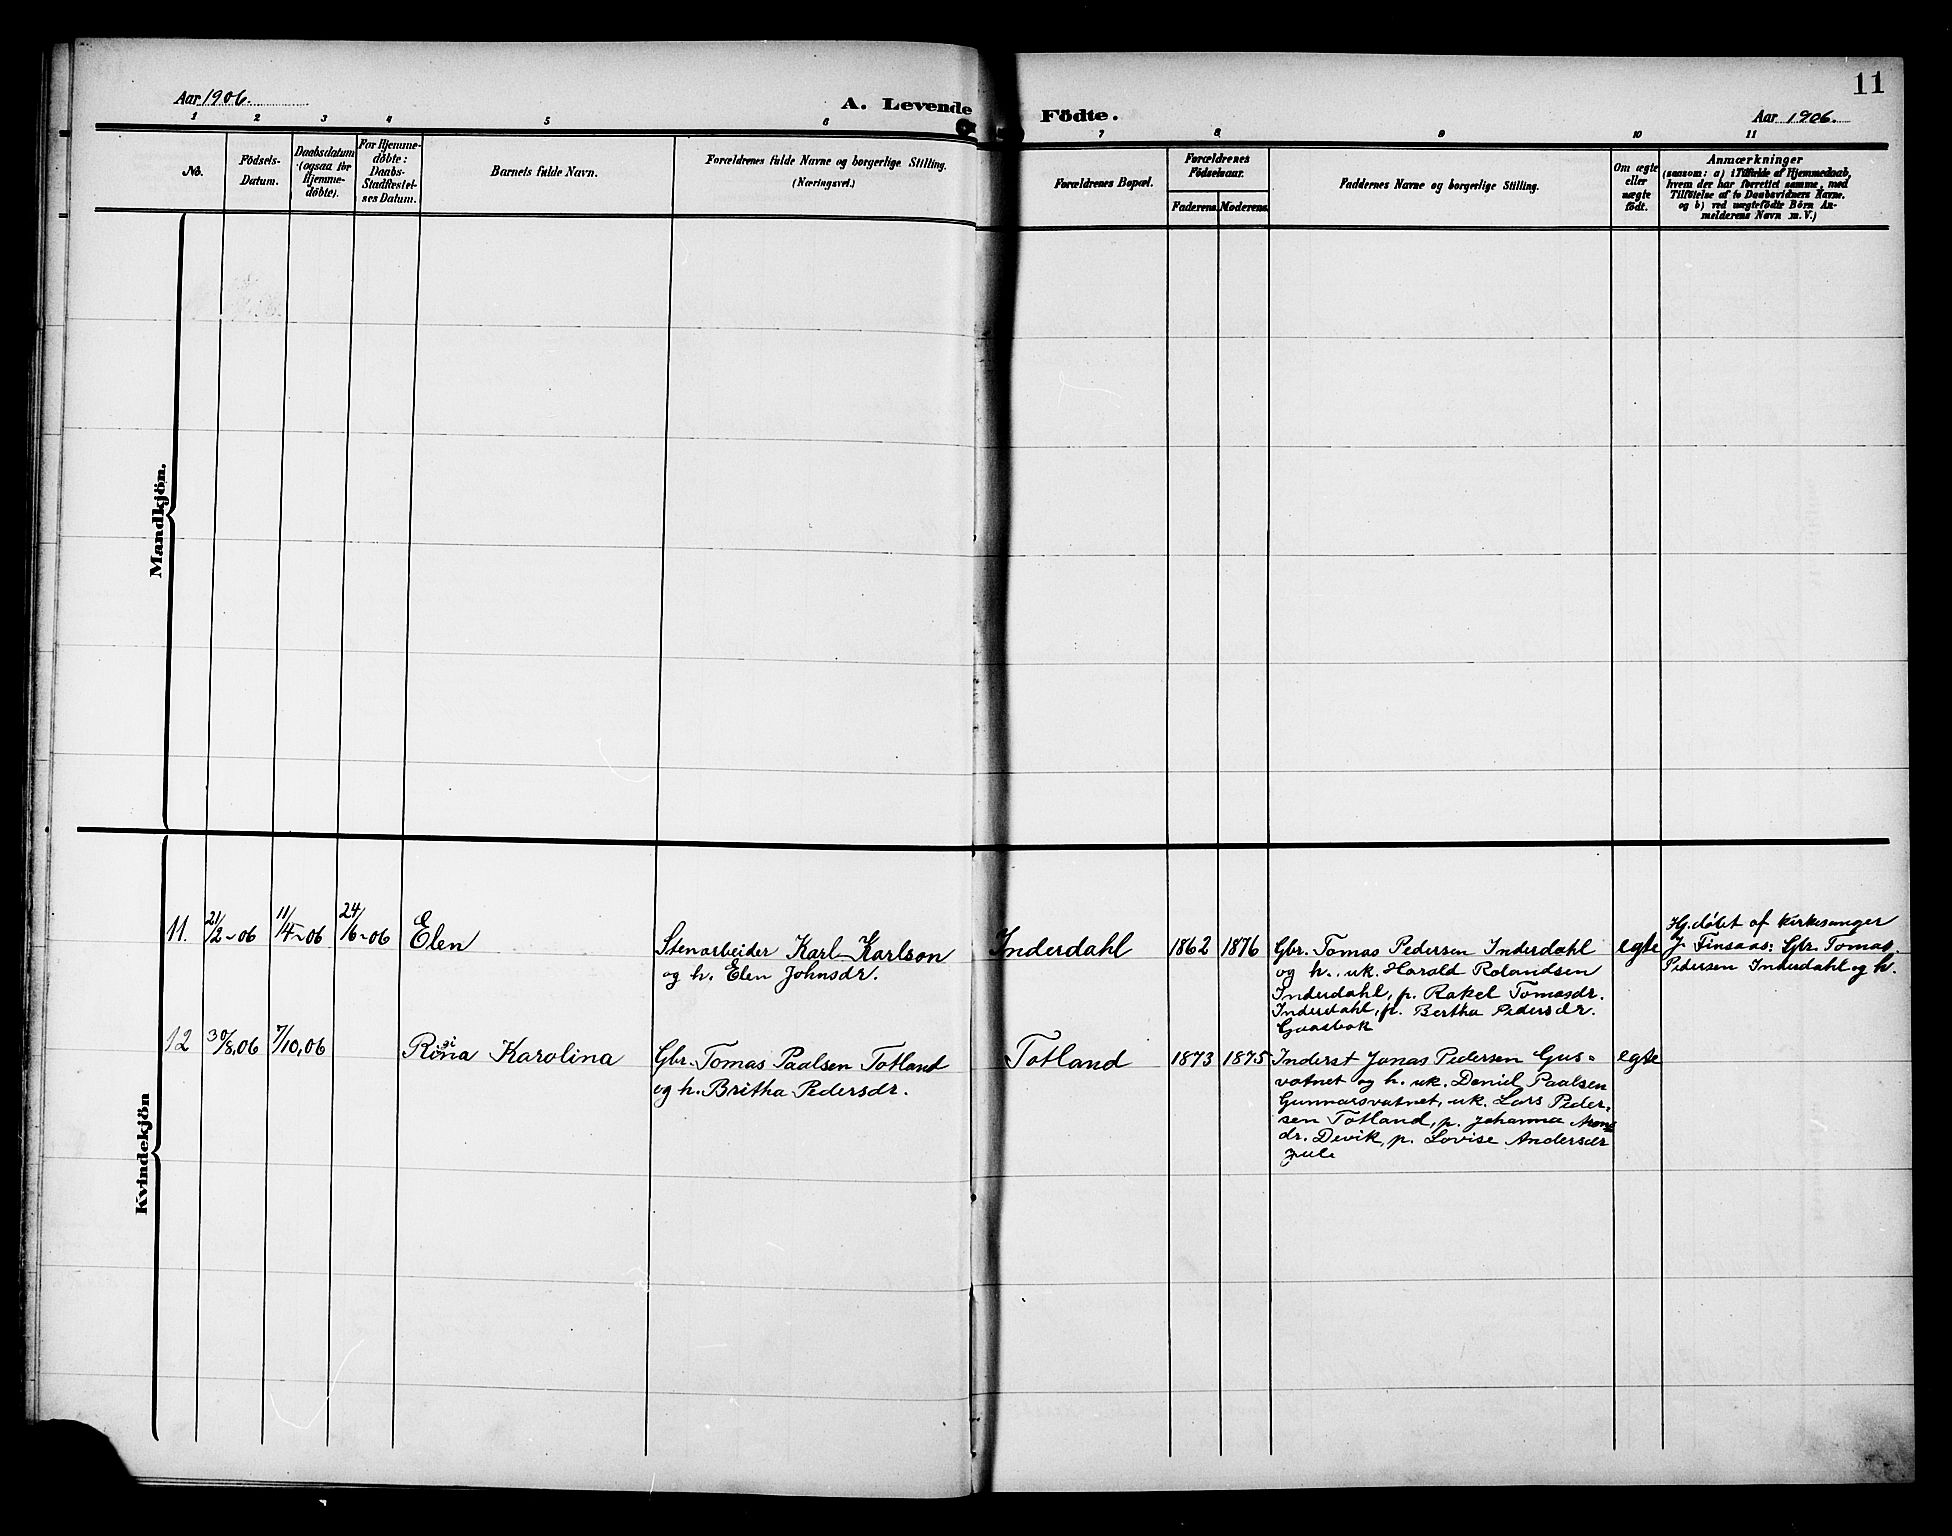 11
Aar 1906.
A. Levende Födte.
Aar 1906.
1 2 3 4 5 6 7 8 9 10 11
No.
Födsels-
Datum.
Daabsdatum
(ogsaa for
Hjemme-
døbte).
For Hjemme-
døbte:
Daabs-
Stadfæstel-
ses Datum.
Barnets fulde Navn.
Forældrenes fulde Navne og borgerlige Stilling.
(Næringsvei.)
Forældrenes Bopæl.
Forældrenes
Födselsaar.
Faderens. Moderens.
Faddernes Navne og borgerlige Stilling.
Om ægte
eller
uægte
födt.
Anmærkninger
(saasom: a) i Tilfælde af Hjemmedaab,
hvem der har forrettet samme, med
Tilföielse af to Daabsvidners Navne.
og b) ved uægtefödte Börn An-
melderens Navn m. V.)
Mandkjön.
Kvindekjön
11. 21/2-06 11/4-06 24/6-06 Elen
Stenarbeider Karl Karlson
og h. Elen Johnsdr.
Inderdahl 1862 1876
Gbr. Tomas Pedersen Inderdahl
og h., uk. Harald Rolandsen
Inderdahl, p. Rakel Tomasdr.
Inderdahl, p. Bertha Pedersdr.
Gaasbak
egte
Hj.døbt af kirkesanger
J. Finsaas: Gbr. Tomas
Pedersen Inderdahl og h.
12 30/8,06 7/10,06 Karolina
Gbr. Tomas Paalsen Totland
og h. Britha Pedersdr.
Totland 1873 1875
Inderst Jonas Pedersen Gus-
vatnet og h. uk. Daniel Paalsen
Gunnarsvatnet, uk. Lars Peder-
sen Totland, p. Johanna
dr. Devik, p. Lovise Andersdr
egte